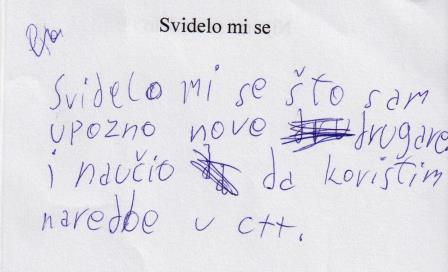 Svidelo mi se
Svidelo mi se što sam
upozno nove drugare
i naučio da koristim
naredbe u c++.